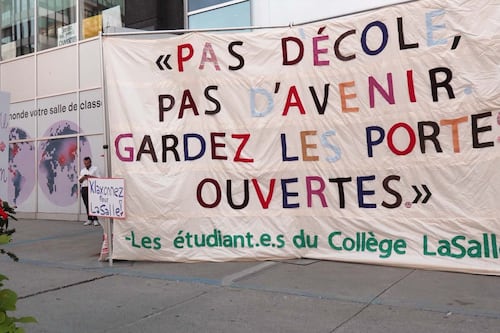 monde votre salle de classe
«PAS DÉCOLE,
PAS D'AVENIR.
GARDEZ LES PORTES
OUVERTES.»
-Les étudiant.e.s du Collège LaSalle
Klaxonnez
Pour
LaSalle!